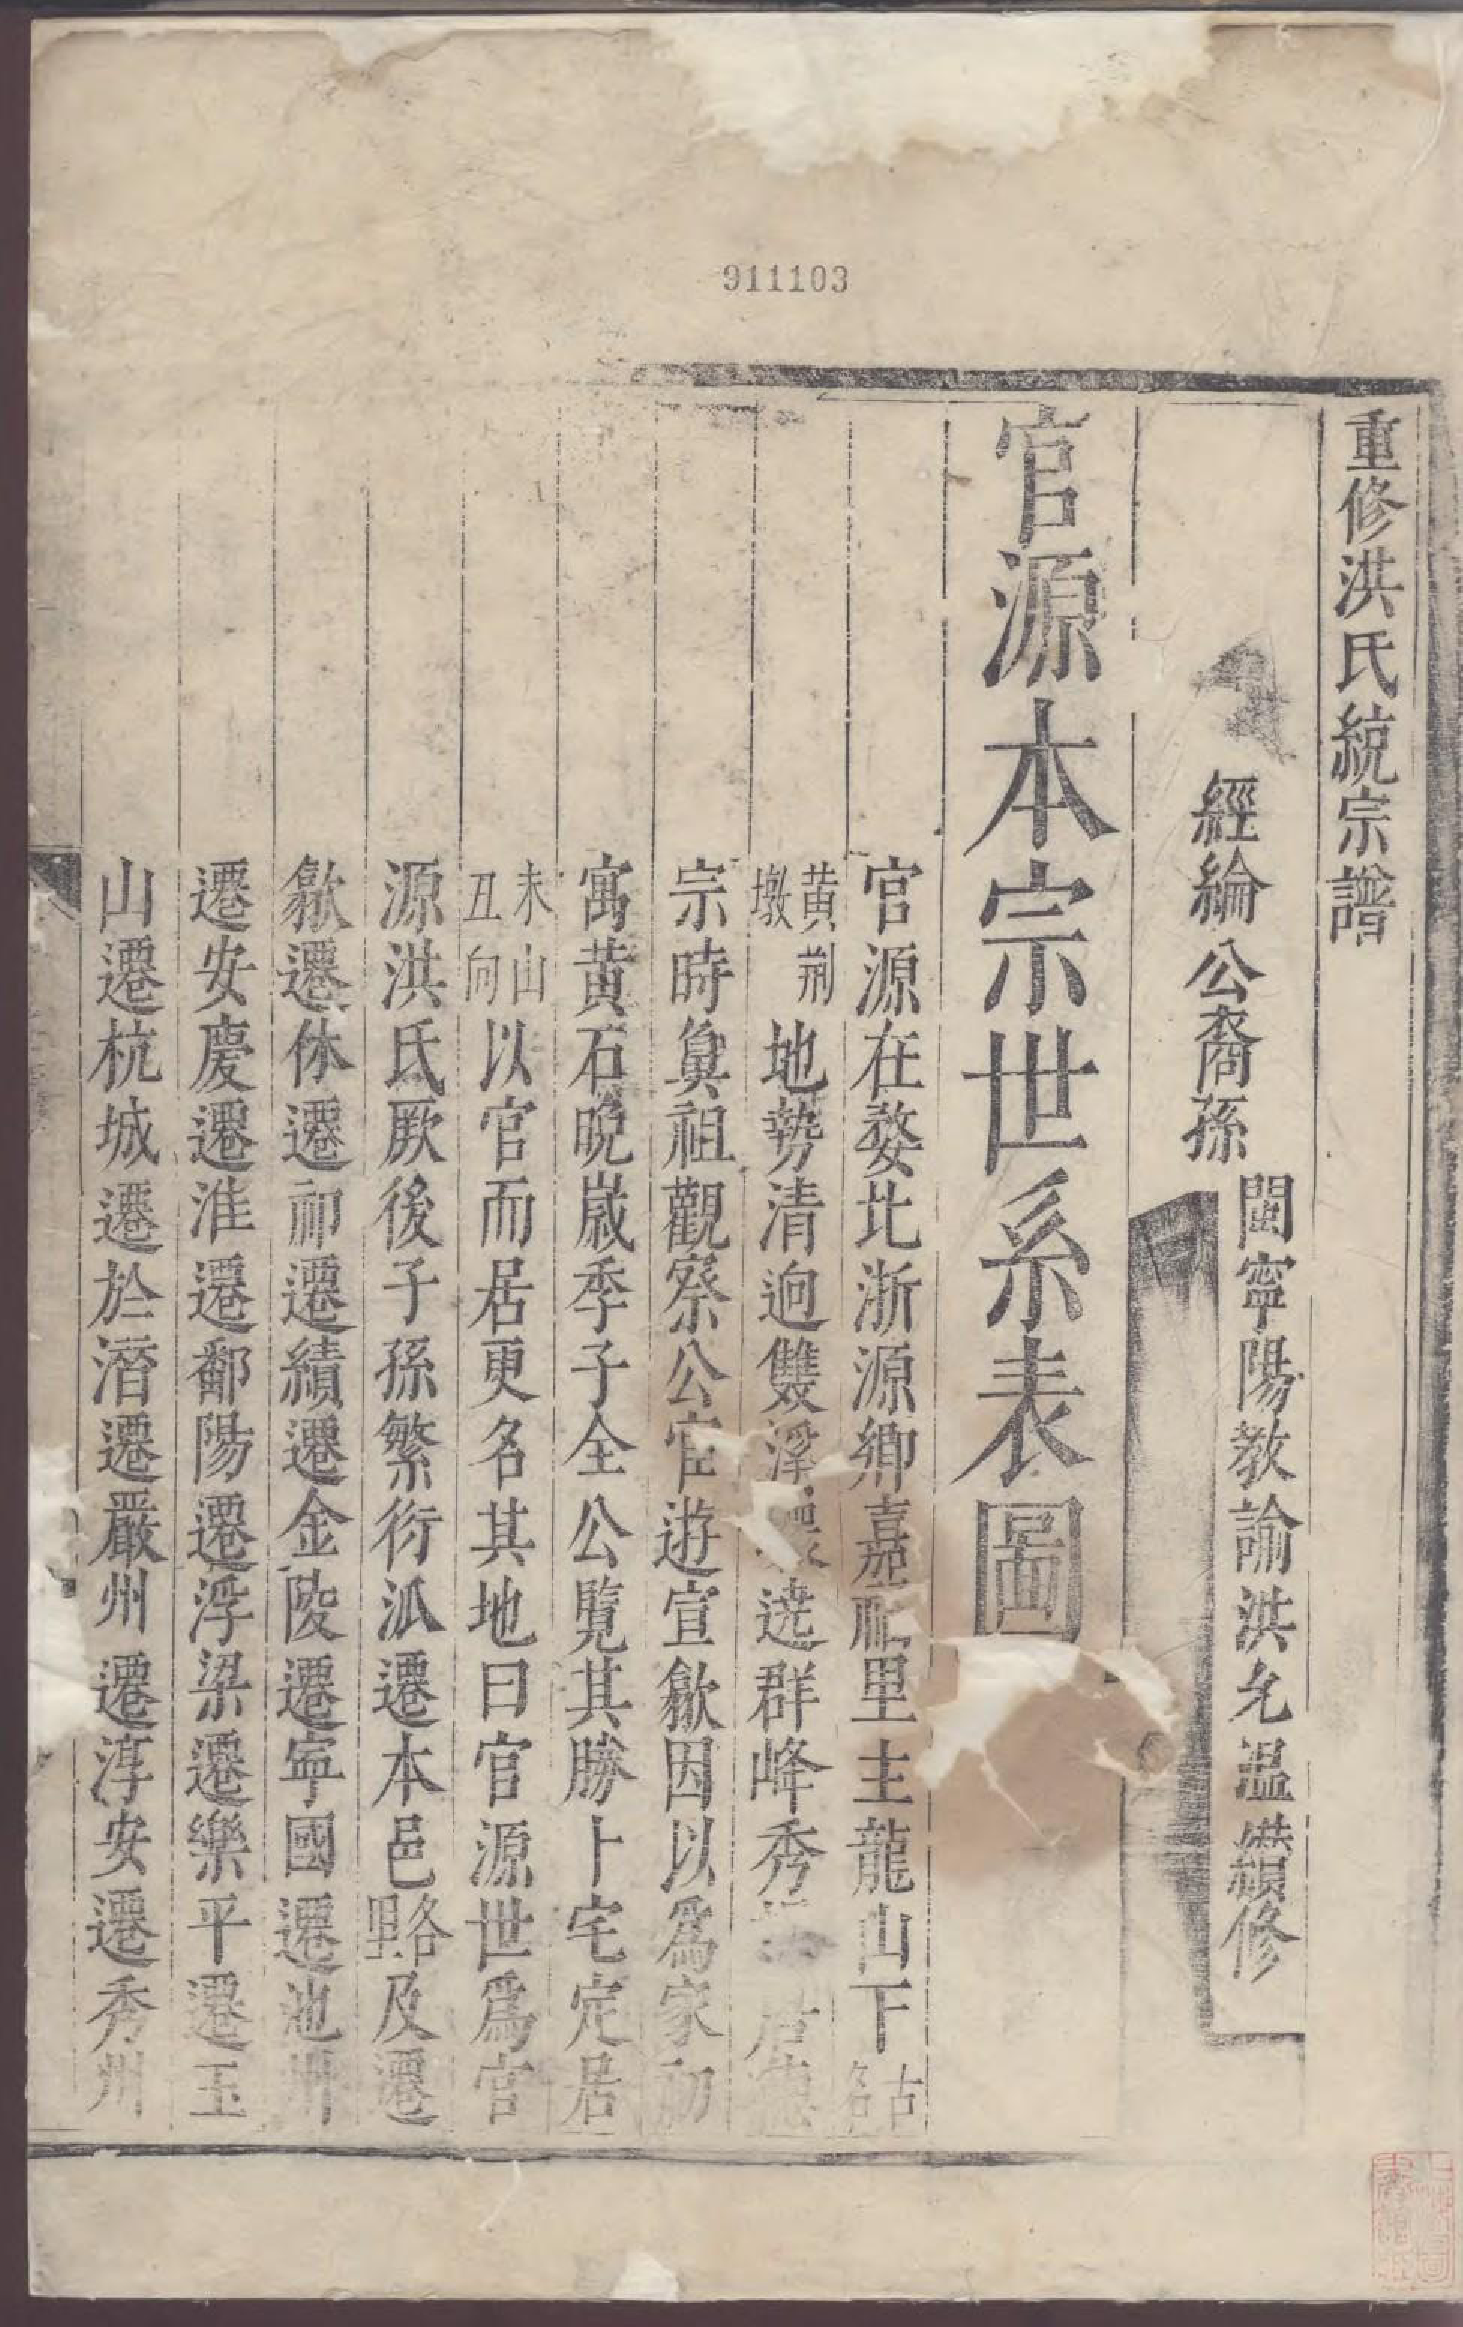 911103
重修洪氏統宗譜
經綸公裔孫閩寧陽教諭洪允溫纘修
官源本宗世系表圖
官源在婺北浙源鄉嘉福里主龍山下古名
黃荆墩地勢清迥雙溪環遶群峰秀唐德
宗時鼻祖觀察公宦遊宣歙因以爲家初
寓黃石晩歲季子全公覽其勝卜宅定居
未山丑向以官而居更名其地曰官源世爲官
源洪氏厥後子孫繁衍派遷本邑畧及遷
歙遷休遷祁遷績遷金陵遷寧國遷池州
遷安慶遷淮遷鄱陽遷浮梁遷樂平遷玉
山遷杭城遷於潛遷嚴州遷淳安遷秀州